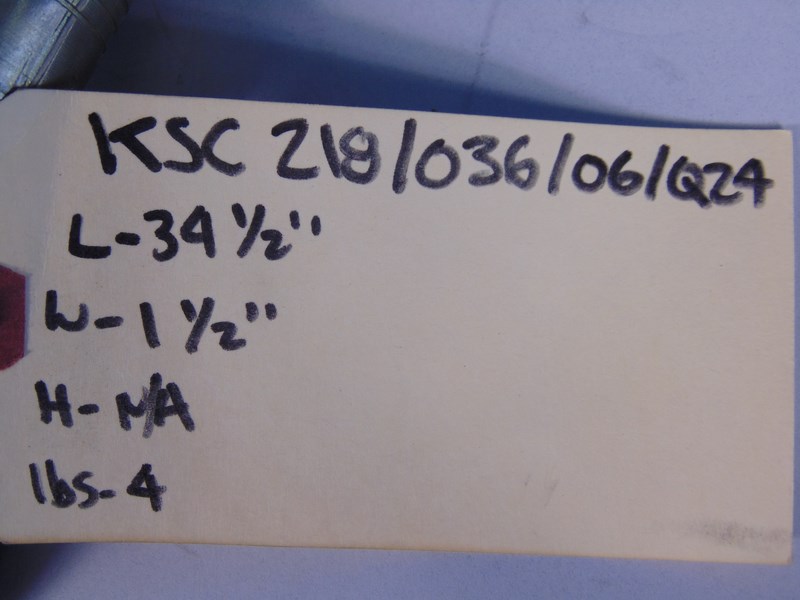 KSC 218/036/06/Q24
L-34 1/2"
W-1 1/2"
H-N/A
lbs-4